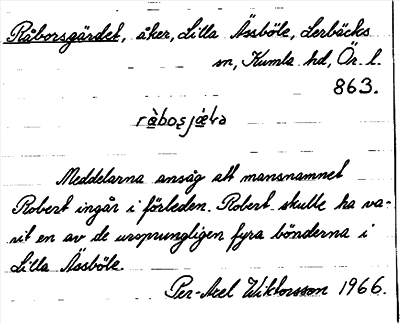 Råborsgärdet, åker, Lilla Ässböle, Lerbäcks
sn, Kumla hd, Ör. l.
863.
ràbosjæ̀ʈa
Meddelarna ansåg att mansnamnet
Robert ingår i förleden. Robert skulle ha va-
rit en av de ursprungligen fyra bönderna i
Lilla Ässböle.
Per-Axel Wiktorsson 1966.